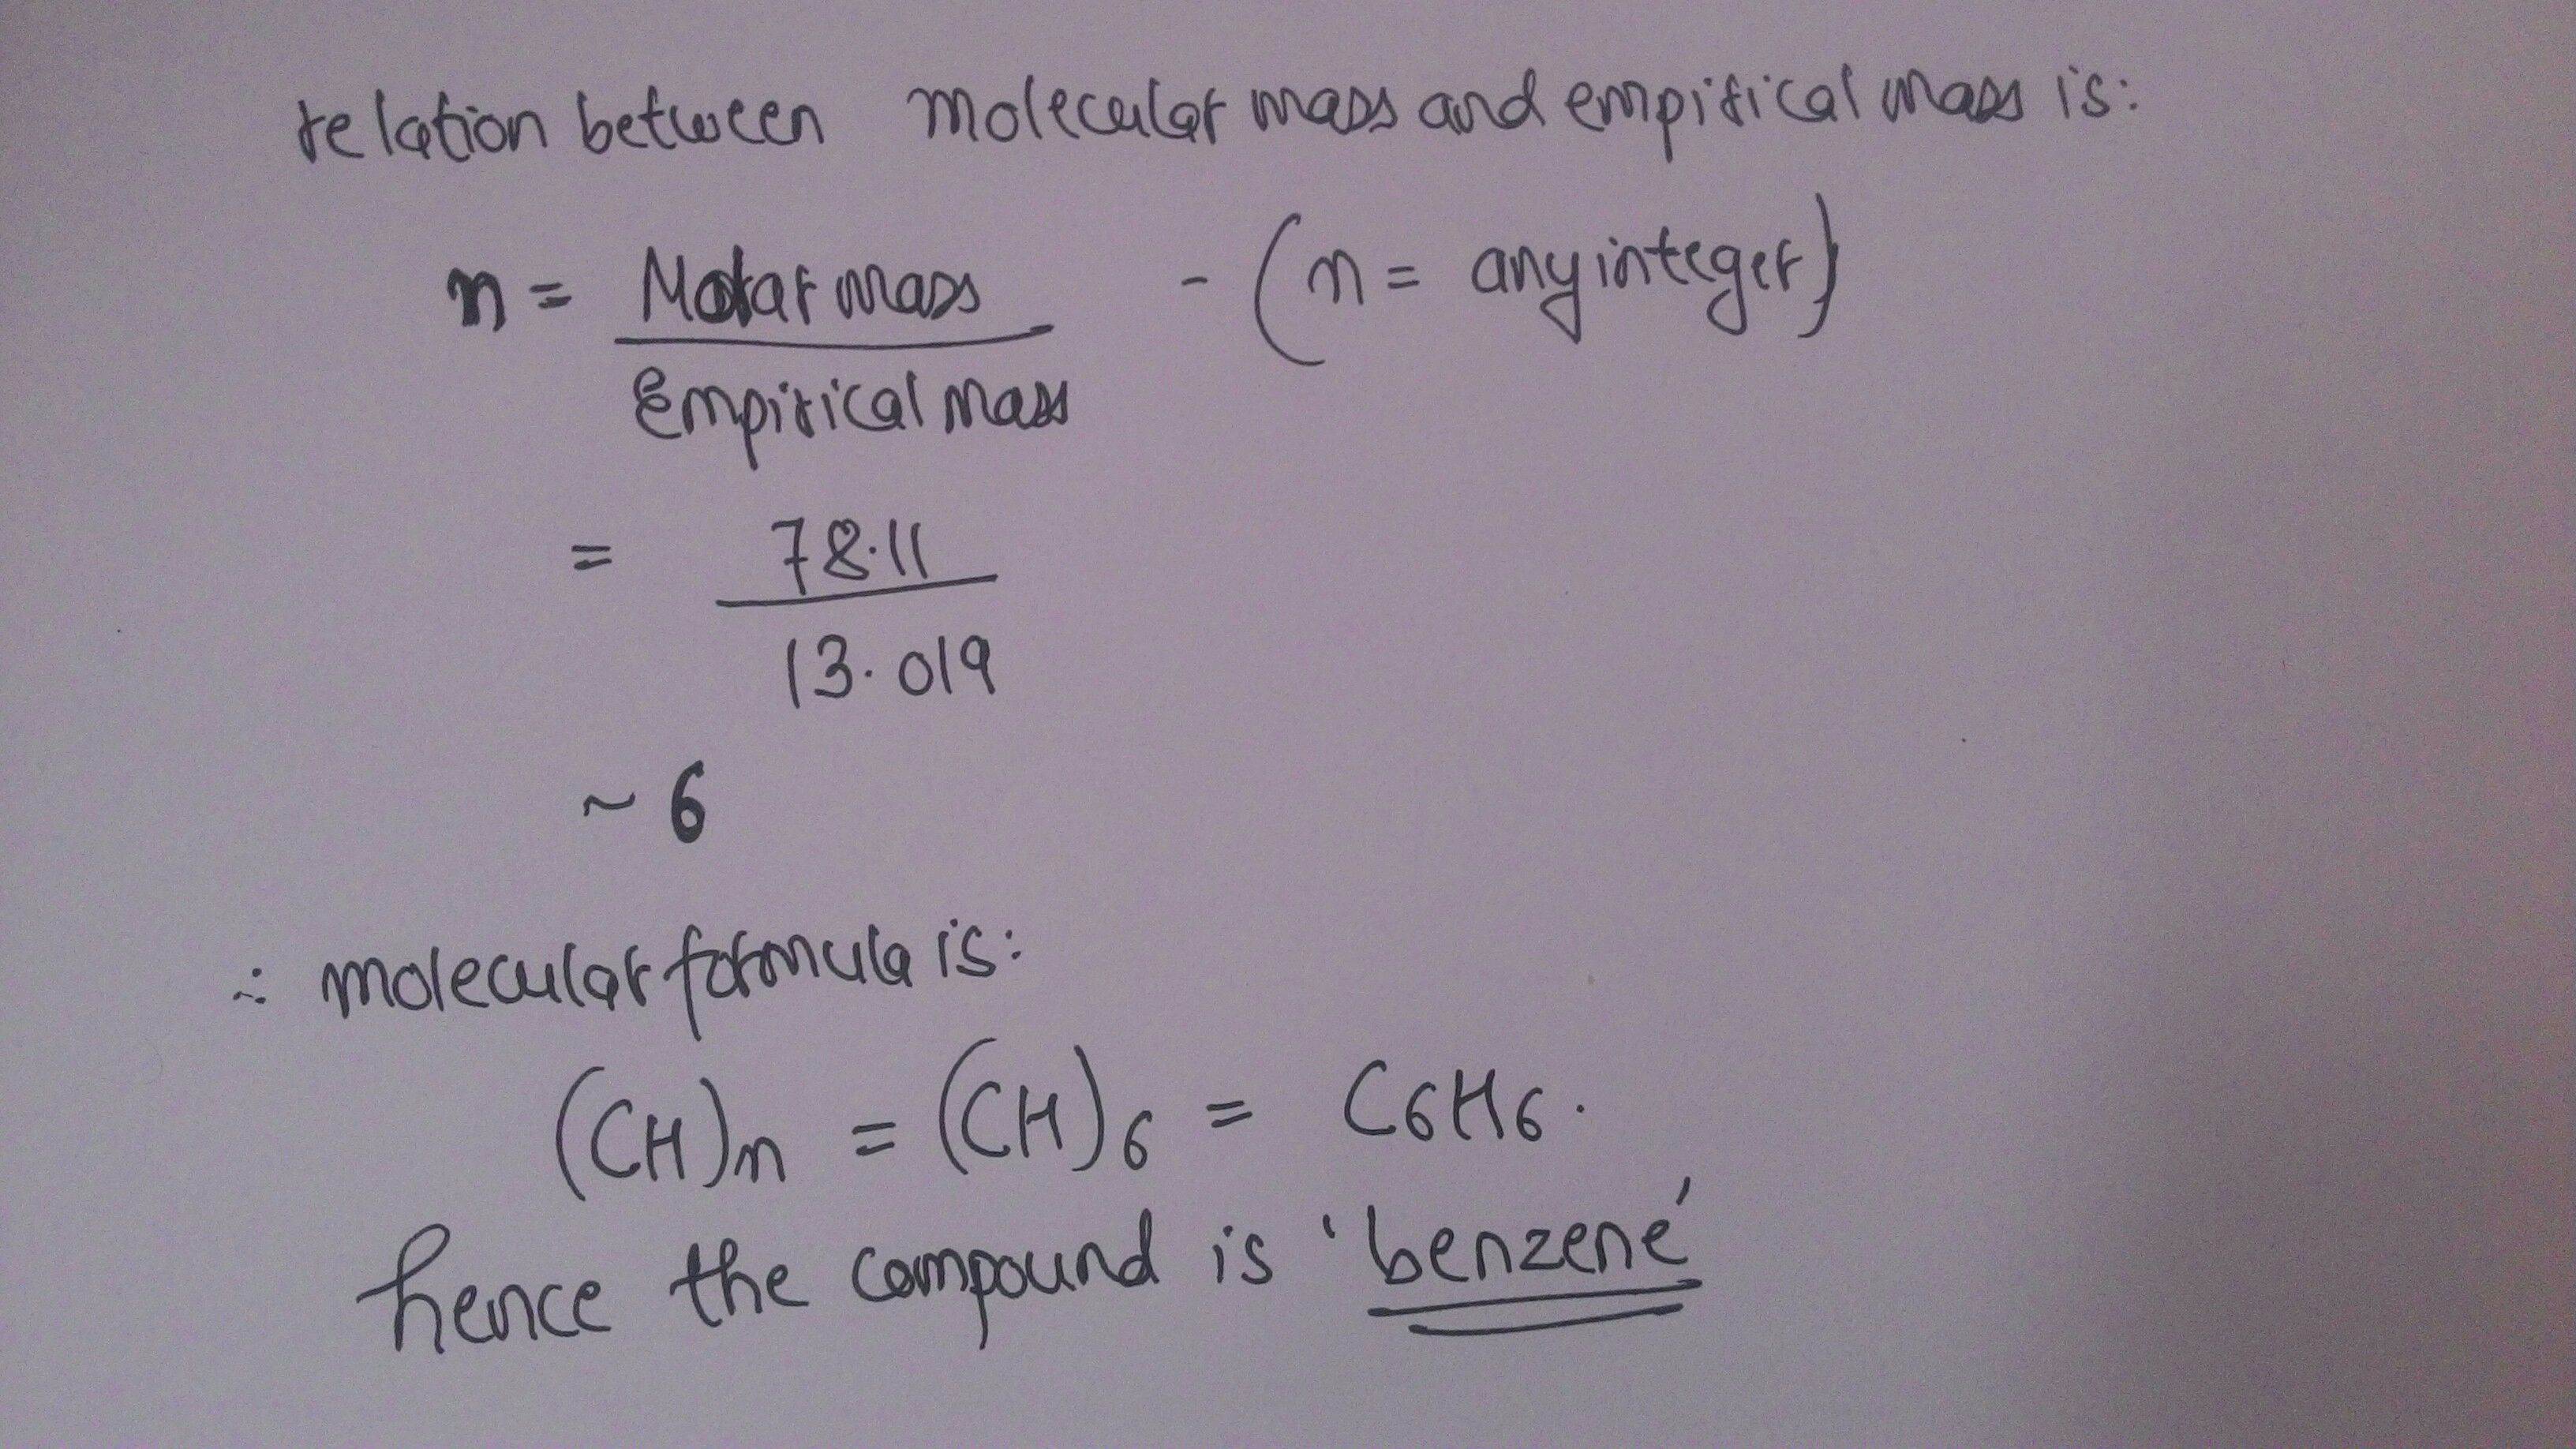 relation between molecular mass and empirical mass is:
n = Molar mass - (n = any integer)
Empirical mass
= 78.11
13.019
~ 6
∴ molecular formula is:
(CH)n = (CH)6 = C6H6.
hence the compound is 'benzene'